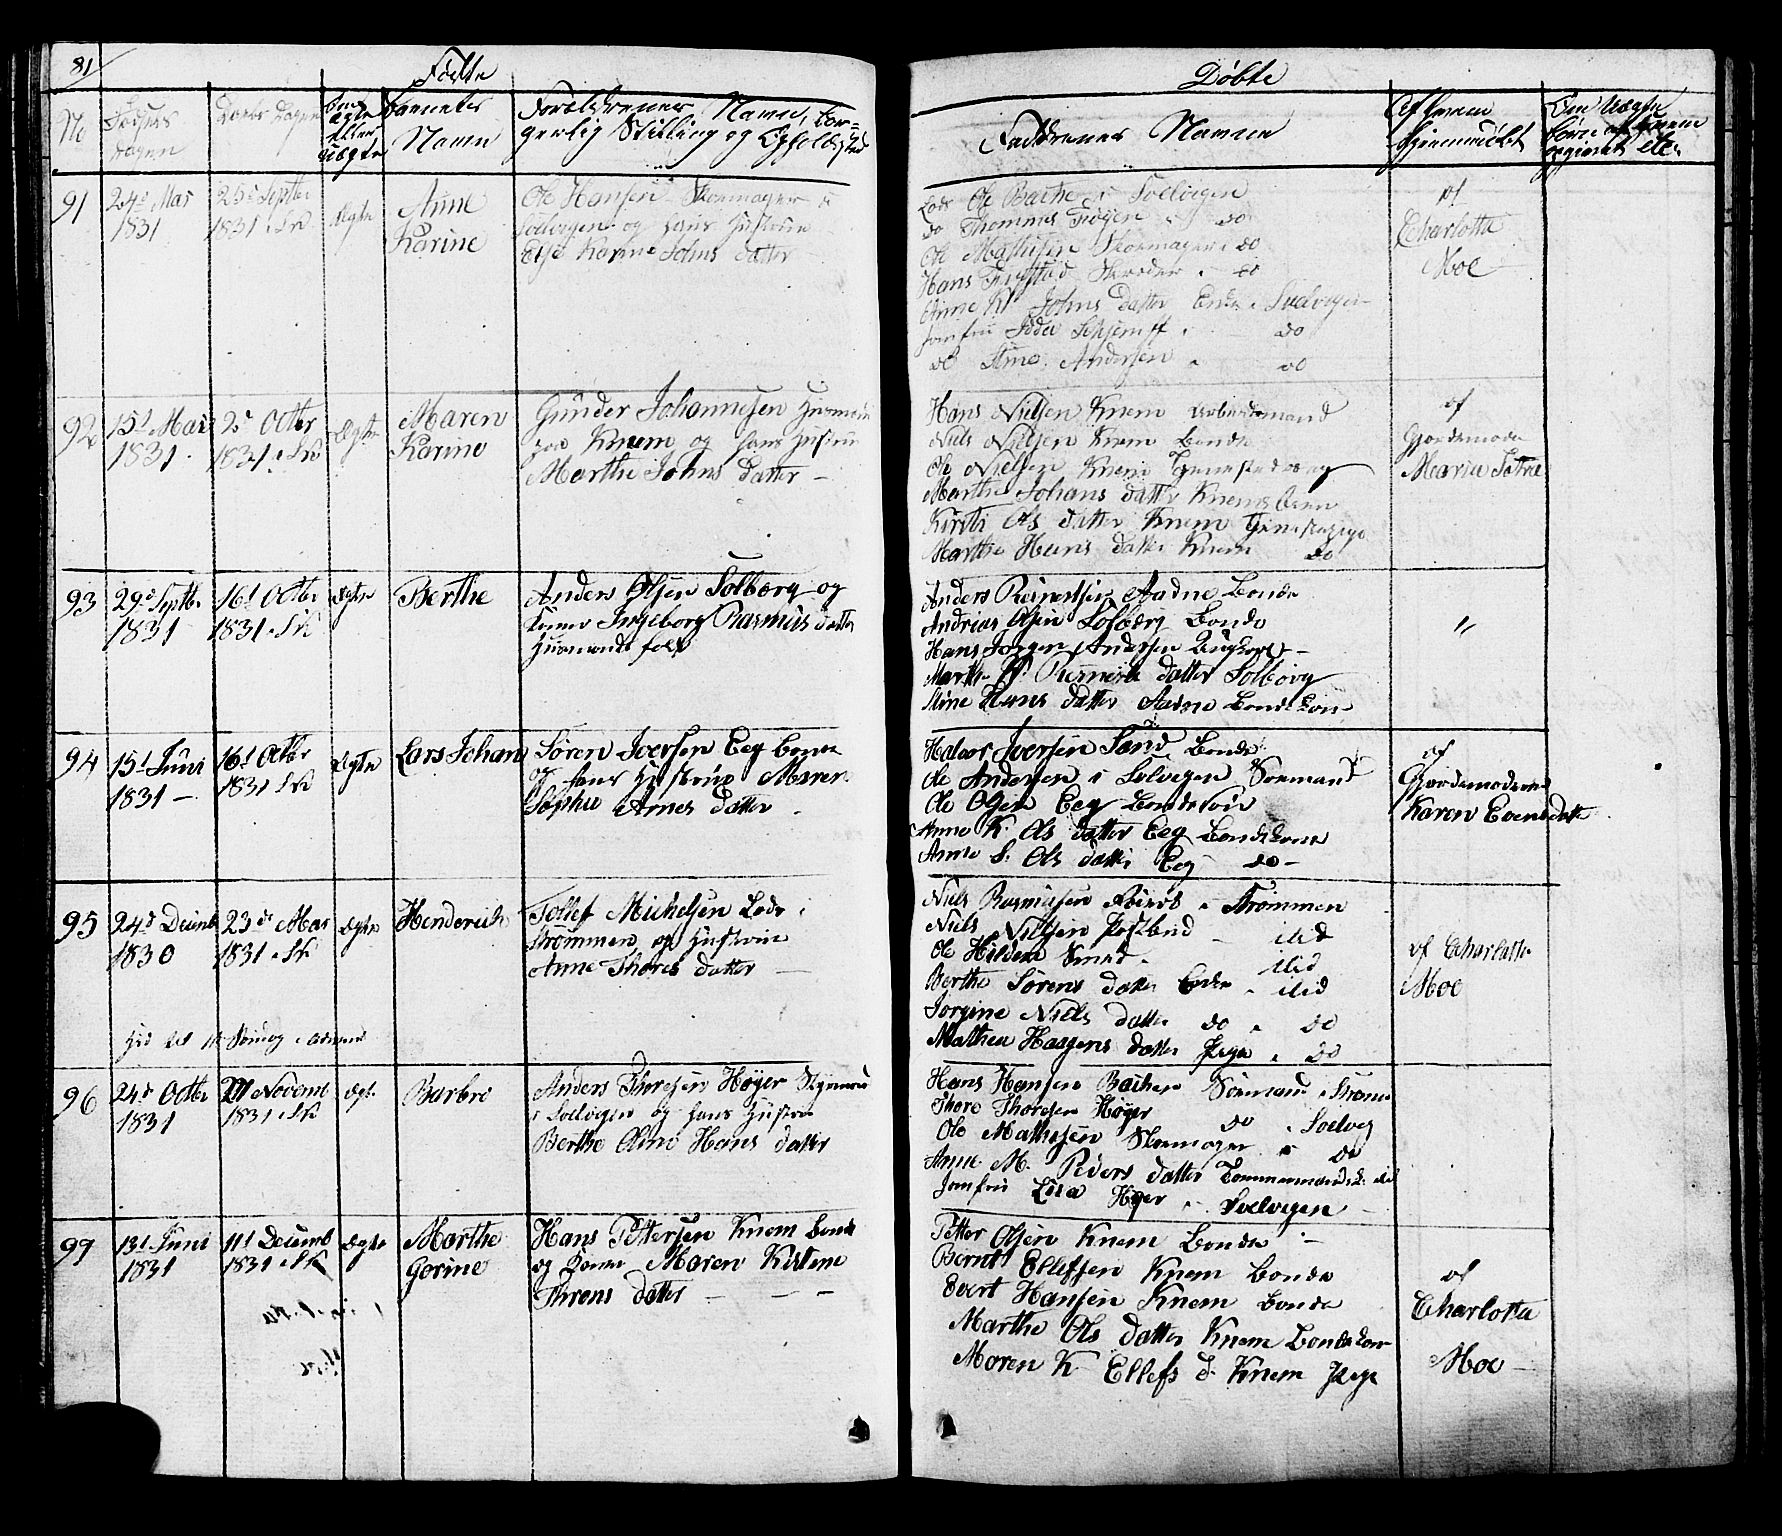 81
Fødte
Døbte
No
Fødsels Dagen
Daabs Dagen
Om Ægte eller Uægte
Barnets Navne
Forældrenes Navne, bor-
gerlig Stilling og Opholdsted
Faddrenes Navne
Af hvem hjemmedøbt
91
24de Mai 1831
25de Septbr 1831 i Sk
Ægte
Anne Karine
Ole Hansen Skomager i
Solvigen og hans Hustrue
Else Karine Johns datter
Lods Ole Bache i Solvigen
do Thommes Fröyen do
Ole Mathisen Skomager i do
Hans Skreder i do
Anne K. Johns datter Enke i Svelvigen
Jomfrue do
do Stine Andersen do
af
Charlotta
Moe
92
15d Mai 1831
2d Octbr 1831 i Sk
Ægte
Maren Karine
Gunder Johannesen Huusmand
paa Knem og hans Hustrue
Marthe Johns Datter
Hans Nielsen Knem Arbeidsmand
Niels Nielsen Knem Bonde
Ole Nielsen Knem Tjenestedreng
Marthe Johans datter Knems Eien
Kirsti Ols datter Knem Tjenestepige
Marthe Hans datter Knem do
af
Gjordemoder
Maria
93
29d Septbr 1831
16d Octbr 1831 i Sk
Ægte
Berthe
Anders Olsen Solberg og
Konne Ingeborg Rasmus datter
Huusmands folk
Anders Reinertsen Aadne Bonde
Andrias Olsen Solberg Bonde
Hans Jorgen Andersen
Marthe K. datter Solberg
Stine Hans datter Aadne Bondekone
"
94
15d Juni 1831
16d Octbr 1831 i Sk
Ægte
Lars Johan
Søren Iversen Eeg Bonde
og hans Hustrue Maren
Sophie Arnes datter
Halvor Iversen Sand Bonde
Ole Andersen i Solvigen Sømand
Ole Olsen Eeg Bonde
Anne K. Ols datter Eeg Bondekone
Anne S. Ols datter Eeg do
af
Gjordemoderen
Karen Evensdatter
95
24d Decemb 1830
23de Mai 1831 i Sk
Ægte
Henderich
Tollef Michelsen Lods i
Strømmen og Hustrue
Anne Thores datter
Niels Rasmusen i Strømmen
Niels Nielsen Postbud ibid
Ole Hilden Smed ibid
Berthe Sørens datter Enke ibid
Jorgine Niels datter do i do
Mathea Haagens datter Pige i do
af Charlotte
Moe
96
24d Octbr 1831
27 Novemb 1831 i Sk
Ægte
Barbro
Anders Thoresen Høyer
i Solvigen og hans Hustrue
Berthe Oline Hans datter
Hans Hansen Bache Sømand i Strømm
Thore Thoresen Høyer do i Solvig
Ole Mathisen Skomager i do
Anne M. Peders datter
Jomfrue Lisa Høyer i Svelvigen
97
13d Juni 1831
11d Decemb 1831 i Sk
Ægte
Marthe Gorine
Hans Pettersen Knem Bonde
og Konne Maren Kirstine
Throns datter
Petter Olsen Knem Bonde
Bernt Ellefsen Knem Bonde
Evert Hansen Knem Bonde
Marthe Ols datter Knem Bondekone
Maren K. Ellefs d. Knem Pige
af
Charlotta
Moe